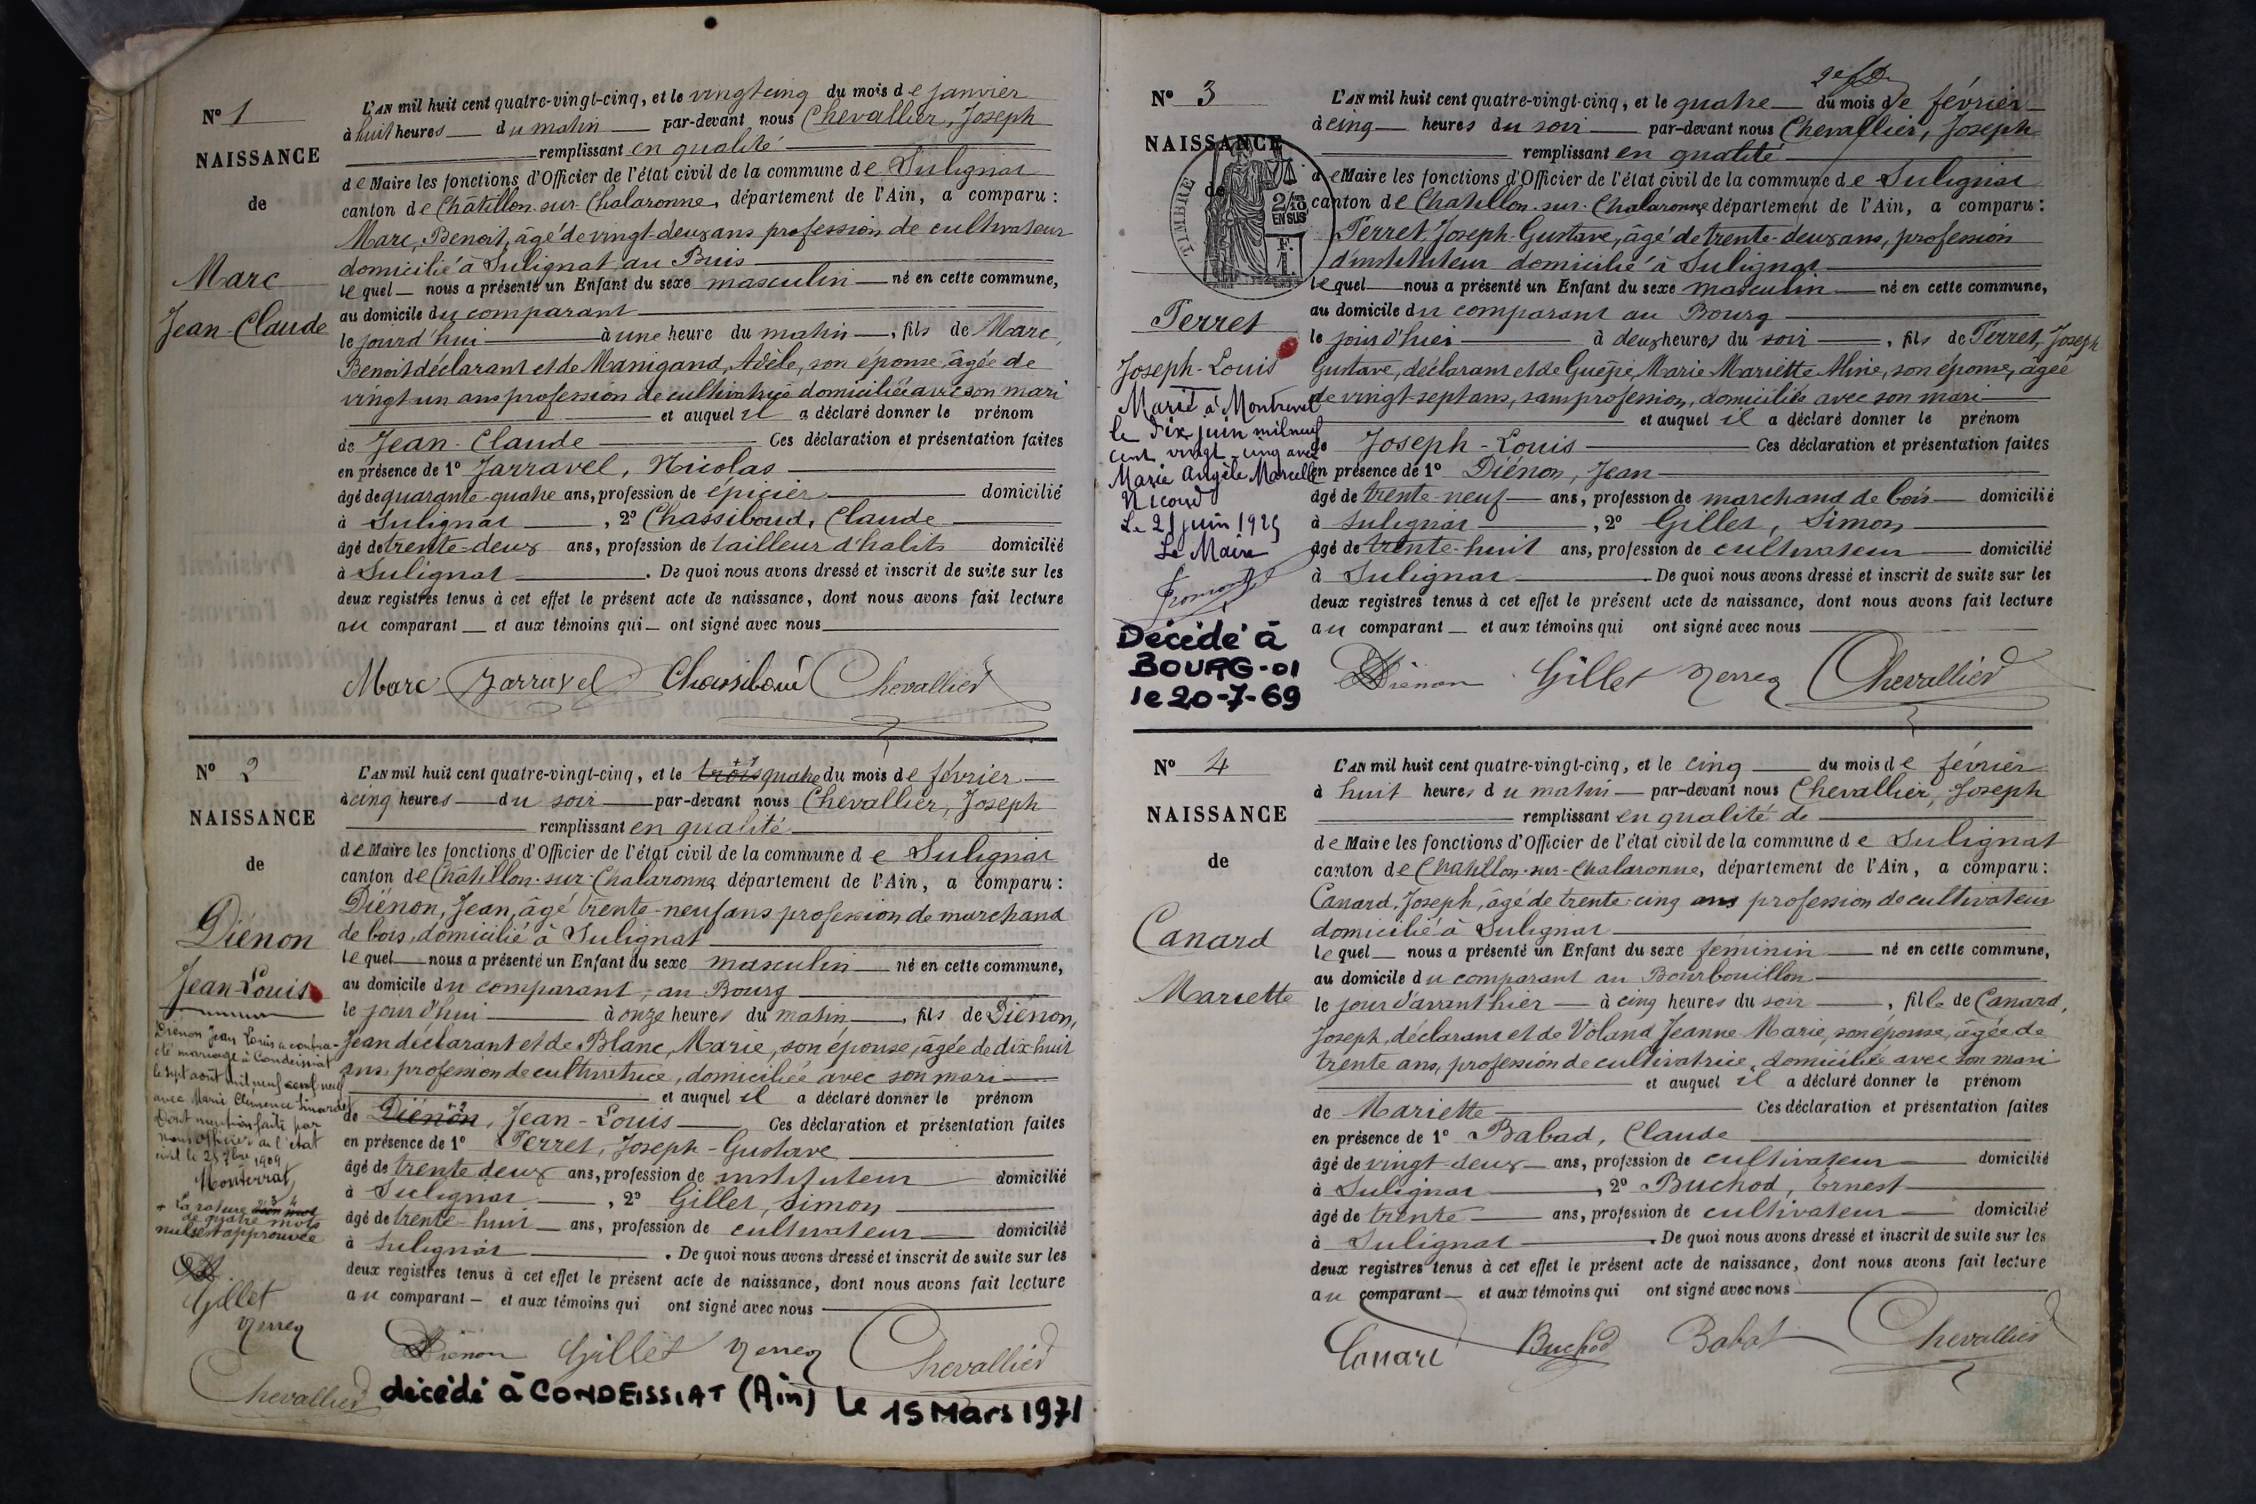 Nº 1
NAISSANCE
de
Marc
Jean-Claude
L'AN mil huit cent quatre-vingt-cinq, et le vingt cinq du mois de janvier
à huit heures du matin par-devant nous Chevallier, Joseph
remplissant en qualité
de Maire les fonctions d'Officier de l'état civil de la commune de Sulignat
canton de Châtillon-sur-Chalaronne, département de l'Ain, a comparu :
Marc, Benoit, âgé de vingt-deux ans profession de cultivateur
domicilié à Sulignat au Buis
lequel nous a présenté un Enfant du sexe masculin né en cette commune,
au domicile du comparant
le jourd'hui à une heure du matin, fils de Marc,
Benoit déclarant et de Manigand, Adèle, son épouse âgée de
vingt-un ans profession de cultivatrice domiciliée avec son mari
et auquel il a déclaré donner le prénom
de Jean-Claude Ces déclaration et présentation faites
en présence de 1º Jarravel, Nicolas
âgé de quarante-quatre ans, profession de épicier domicilié
à Sulignat, 2º Chassiboud, Claude
âgé de trente-deux ans, profession de tailleur d'habits domicilié
à Sulignat. De quoi nous avons dressé et inscrit de suite sur les
deux registres tenus à cet effet le présent acte de naissance, dont nous avons fait lecture
au comparant et aux témoins qui ont signé avec nous
Marc Jarravel Chassiboud Chevallier
Nº 2
NAISSANCE
de
Diénon
Jean-Louis
Diénon Jean Louis a contra-
cté mariage à Condeissiat
le sept août mil neuf cent neuf
avec Marie Clémence Linardet
Dont mention faite par
nous officier de l'état
civil le 25 7bre 1909
Monterrat
+ La rature
de quatre mots
nuls est approuvée
Gillet
Ferret
Chevallier
L'AN mil huit cent quatre-vingt-cinq, et le trois quatre du mois de février
à cinq heures du soir par-devant nous Chevallier, Joseph
remplissant en qualité
de Maire les fonctions d'Officier de l'état civil de la commune de Sulignat
canton de Châtillon-sur-Chalaronne département de l'Ain, a comparu :
Diénon, Jean, âgé trente-neuf ans profession de marchand
de bois, domicilié à Sulignat
lequel nous a présenté un Enfant du sexe masculin né en cette commune,
au domicile du comparant, au Bourg
le jourd'hui à onze heures du matin, fils de Diénon,
Jean déclarant et de Blanc, Marie, son épouse, âgée de dix huit
ans, profession de cultivatrice, domiciliée avec son mari
et auquel il a déclaré donner le prénom
de Diénon, Jean-Louis Ces déclaration et présentation faites
en présence de 1º Ferret, Joseph-Gustave
âgé de trente deux ans, profession de instituteur domicilié
à Sulignat, 2º Gillet, Simon
âgé de trente-huit ans, profession de cultivateur domicilié
à Sulignat. De quoi nous avons dressé et inscrit de suite sur les
deux registres tenus à cet effet le présent acte de naissance, dont nous avons fait lecture
au comparant et aux témoins qui ont signé avec nous
Diénon Gillet Ferret Chevallier
décédé à CONDEISSIAT (Ain) le 15 Mars 1971
Nº 3
NAISSANCE
de
TIMBRE
2/10
EN SUS
F.
1
Ferret
Joseph-Louis
Marié à Montrevel
le dix juin mil neuf
cent vingt-cinq avec
Marie Angèle Marcelle
Nicoud
Le 21 juin 1925
Le Maire
Décédé à
BOURG-01
le 20-7-69
L'AN mil huit cent quatre-vingt-cinq, et le quatre du mois de février
à cinq heures du soir par-devant nous Chevallier, Joseph
remplissant en qualité
de Maire les fonctions d'Officier de l'état civil de la commune de Sulignat
canton de Chatillon-sur-Chalaronne département de l'Ain, a comparu :
Ferret, Joseph-Gustave, âgé de trente-deux ans, profession
d'instituteur domicilié à Sulignat
lequel nous a présenté un Enfant du sexe masculin né en cette commune,
au domicile du comparant au Bourg
le jour d'hier à deux heures du soir, fils de Ferret, Joseph
Gustave, déclarant et de Guépie, Marie Mariette Aline, son épouse, âgée
de vingt-sept ans, sans profession, domiciliée avec son mari
et auquel il a déclaré donner le prénom
de Joseph-Louis Ces déclaration et présentation faites
en présence de 1º Diénon, Jean
âgé de trente-neuf ans, profession de marchand de bois domicilié
à Sulignat, 2º Gillet, Simon
âgé de trente-huit ans, profession de cultivateur domicilié
à Sulignat. De quoi nous avons dressé et inscrit de suite sur les
deux registres tenus à cet effet le présent acte de naissance, dont nous avons fait lecture
au comparant et aux témoins qui ont signé avec nous
Diénon Gillet Ferret Chevallier
Nº 4
NAISSANCE
de
Canard
Mariette
L'AN mil huit cent quatre-vingt-cinq, et le cinq du mois de février
à huit heures du matin par-devant nous Chevallier, Joseph
remplissant en qualité de
de Maire les fonctions d'Officier de l'état civil de la commune de Sulignat
canton de Chatillon-sur-Chalaronne, département de l'Ain, a comparu :
Canard, Joseph, âgé de trente-cinq ans profession de cultivateur
domicilié à Sulignat
lequel nous a présenté un Enfant du sexe féminin né en cette commune,
au domicile du comparant au Bourbouillon
le jour d'avant hier à cinq heures du soir, fille de Canard,
Joseph, déclarant et de Voland Jeanne Marie, son épouse, âgée de
trente ans, profession de cultivatrice, domiciliée avec son mari
et auquel il a déclaré donner le prénom
de Mariette Ces déclaration et présentation faites
en présence de 1º Babad, Claude
âgé de vingt-deux ans, profession de cultivateur domicilié
à Sulignat, 2º Buchod, Ernest
âgé de trente ans, profession de cultivateur domicilié
à Sulignat. De quoi nous avons dressé et inscrit de suite sur les
deux registres tenus à cet effet le présent acte de naissance, dont nous avons fait lecture
au comparant et aux témoins qui ont signé avec nous
Canard Buchod Babad Chevallier